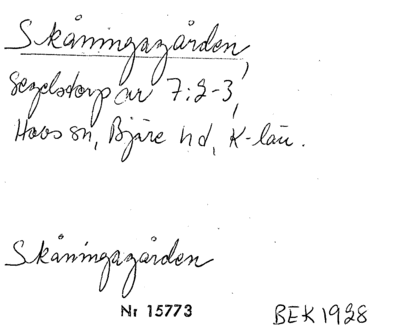 Skåningagården,
Segelstorp nr 7:2-3,
Hovs sn, Bjäre hd, K-län.
Skåningagården
Nr 15773
BEK 1928